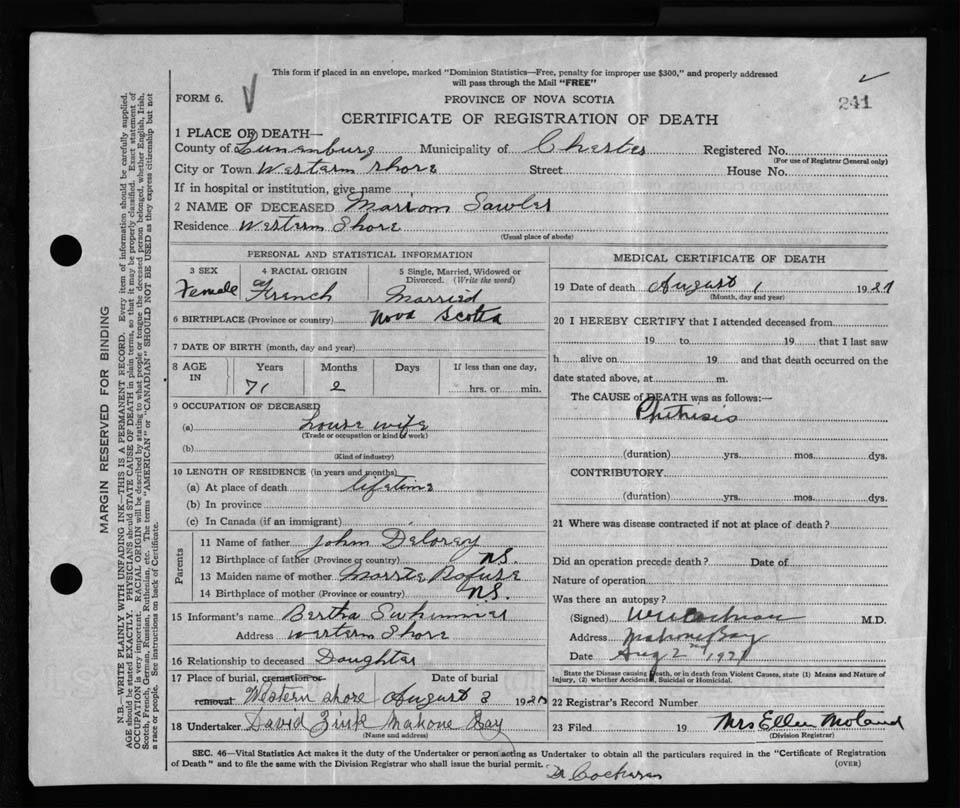 This form if placed in an envelope, marked "Dominion Statistics—Free, penalty for improper use $300," and properly addressed
will pass through the Mail "FREE"
FORM 6.
PROVINCE OF NOVA SCOTIA
241
CERTIFICATE OF REGISTRATION OF DEATH
1 PLACE OF DEATH—
County of Lunenburg Municipality of Chester Registered No.
(For use of Registrar General only)
City or Town Western Shore Street House No.
If in hospital or institution, give name
2 NAME OF DECEASED Marion Sawler
Residence Western Shore
(Usual place of abode)
PERSONAL AND STATISTICAL INFORMATION
3 SEX
Female
4 RACIAL ORIGIN
French
5 Single, Married, Widowed or
Divorced. (Write the word)
Married
6 BIRTHPLACE (Province or country) Nova Scotia
7 DATE OF BIRTH (month, day and year)
8 AGE
IN
Years
71
Months
2
Days
If less than one day,
hrs. or min.
9 OCCUPATION OF DECEASED
(a) house wife
(Trade or occupation or kind of work)
(b)
(Kind of industry)
10 LENGTH OF RESIDENCE (in years and months)
(a) At place of death lifetime
(b) In province
(c) In Canada (if an immigrant)
Parents
11 Name of father John Delorey
12 Birthplace of father (Province or country) NS.
13 Maiden name of mother
14 Birthplace of mother (Province or country) NS.
15 Informant's name Bertha
Address Western Shore
16 Relationship to deceased Daughter
17 Place of burial, cremation or
removal Western Shore
Date of burial
August 3 19
18 Undertaker David Zink Mahone Bay
(Name and address)
MEDICAL CERTIFICATE OF DEATH
19 Date of death August 1 19
(Month, day and year)
20 I HEREBY CERTIFY that I attended deceased from
19 to 19 that I last saw
h alive on 19 and that death occurred on the
date stated above, at m.
The CAUSE of DEATH was as follows:—
Phthisis
(duration) yrs. mos. dys.
CONTRIBUTORY
(duration) yrs. mos. dys.
21 Where was disease contracted if not at place of death?
Did an operation precede death? Date of
Nature of operation
Was there an autopsy?
(Signed) Cochran M.D.
Address Mahone Bay
Date Aug 2nd
State the Disease causing Death, or in death from Violent Causes, state (1) Means and Nature of
Injury, (2) whether Accidental, Suicidal or Homicidal.
22 Registrar's Record Number
23 Filed 19 Mrs Ellen Moland
(Division Registrar)
SEC. 46—Vital Statistics Act makes it the duty of the Undertaker or person acting as Undertaker to obtain all the particulars required in the "Certificate of Registration
of Death" and to file the same with the Division Registrar who shall issue the burial permit.
(OVER)
Dr Cochran
MARGIN RESERVED FOR BINDING
N.B.—WRITE PLAINLY WITH UNFADING INK—THIS IS A PERMANENT RECORD. Every item of information should be carefully supplied.
AGE should be stated EXACTLY. PHYSICIANS should STATE CAUSE OF DEATH in plain terms, so that it may be properly classified. Exact statement of
OCCUPATION is very important. RACIAL ORIGIN will be described by stating to what people or tongue the deceased person belonged, whether English, Irish,
Scotch, French, German, Russian, Ruthenian, etc. The terms "AMERICAN" or "CANADIAN" SHOULD NOT BE USED as they express citizenship but not
a race or people. See instructions on back of Certificate.